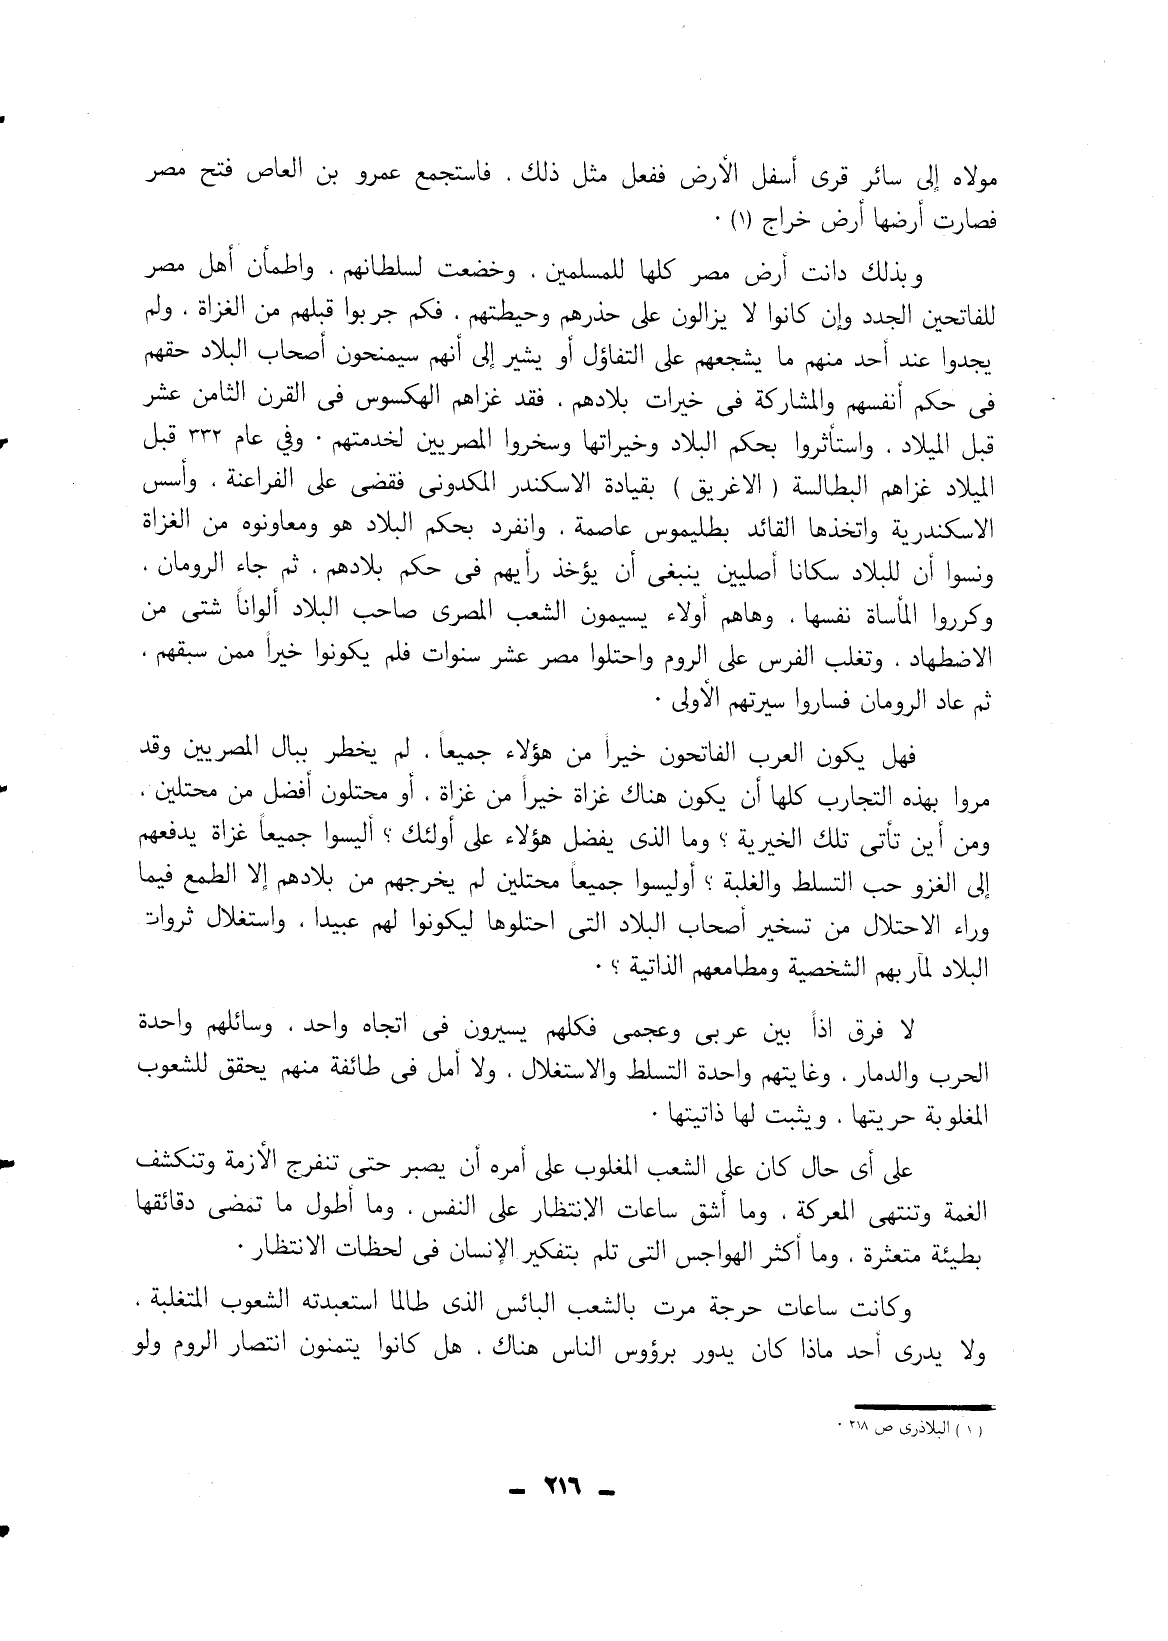 مولاه إلى سائر قرى أسفل الأرض ففعل مثل ذلك . فاستجمع عمرو بن العاص فتح مصر
فصارت أرضها أرض خراج (١) ٠
وبذلك دانت أرض مصر كلها للمسلمين . وخضعت لسلطانهم . واطمأن أهل مصر
للفاتحين الجدد وإن كانوا لا يزالون على حذرهم وحيطتهم . فكم جربوا قبلهم من الغزاة . ولم
يجدوا عند أحد منهم ما يشجعهم على التفاؤل أو يشير إلى أنهم سيمنحون أصحاب البلاد حقهم
فى حكم أنفسهم والمشاركة فى خيرات بلادهم . فقد غزاهم الهكسوس فى القرن الثامن عشر
قبل الميلاد . واستأثروا بحكم البلاد وخيراتها وسخروا المصريين لخدمتهم ٠ وفي عام ٣٣٢ قبل
الميلاد غزاهم البطالسة ( الاغريق ) بقيادة الاسكندر المكدونى فقضى على الفراعنة . وأسس
الاسكندرية واتخذها القائد بطليموس عاصمة . وانفرد بحكم البلاد هو ومعاونوه من الغزاة
ونسوا أن للبلاد سكانا أصليين ينبغى أن يؤخذ رأيهم فى حكم بلادهم . ثم جاء الرومان .
وكرروا المأساة نفسها . وهاهم أولاء يسيمون الشعب المصرى صاحب البلاد ألواناً شتى من
الاضطهاد . وتغلب الفرس على الروم واحتلوا مصر عشر سنوات فلم يكونوا خيراً ممن سبقهم .
ثم عاد الرومان فساروا سيرتهم الأولى ٠
فهل يكون العرب الفاتحون خيراً من هؤلاء جميعاً . لم يخطر ببال المصريين وقد
مروا بهذه التجارب كلها أن يكون هناك غزاة خيراً من غزاة . أو محتلون أفضل من محتلين .
ومن أين تأتى تلك الخيرية ؟ وما الذى يفضل هؤلاء على أولئك ؟ أليسوا جميعاً غزاة يدفعهم
إلى الغزو حب التسلط والغلبة ؟ أوليسوا جميعاً محتلين لم يخرجهم من بلادهم إلا الطمع فيما
وراء الاحتلال من تسخير أصحاب البلاد التى احتلوها ليكونوا لهم عبيداً . واستغلال ثروات
البلاد لمآربهم الشخصية ومطامعهم الذاتية ؟ ٠
لا فرق اذاً بين عربى وعجمى فكلهم يسيرون فى اتجاه واحد . وسائلهم واحدة
الحرب والدمار . وغايتهم واحدة التسلط والاستغلال . ولا أمل فى طائفة منهم يحقق للشعوب
المغلوبة حريتها . ويثبت لها ذاتيتها ٠
على أى حال كان على الشعب المغلوب على أمره أن يصبر حتى تنفرج الأزمة وتنكشف
الغمة وتنتهى المعركة . وما أشق ساعات الإنتظار على النفس . وما أطول ما تمضى دقائقها
بطيئة متعثرة . وما أكثر الهواجس التى تلم بتفكير الإنسان فى لحظات الانتظار ٠
وكانت ساعات حرجة مرت بالشعب البائس الذى طالما استعبدته الشعوب المتغلبة .
ولا يدرى أحد ماذا كان يدور برؤوس الناس هناك . هل كانوا يتمنون انتصار الروم ولو
( ١ ) البلاذرى ص ٢١٨ ٠
ـ ٢١٦ ـ